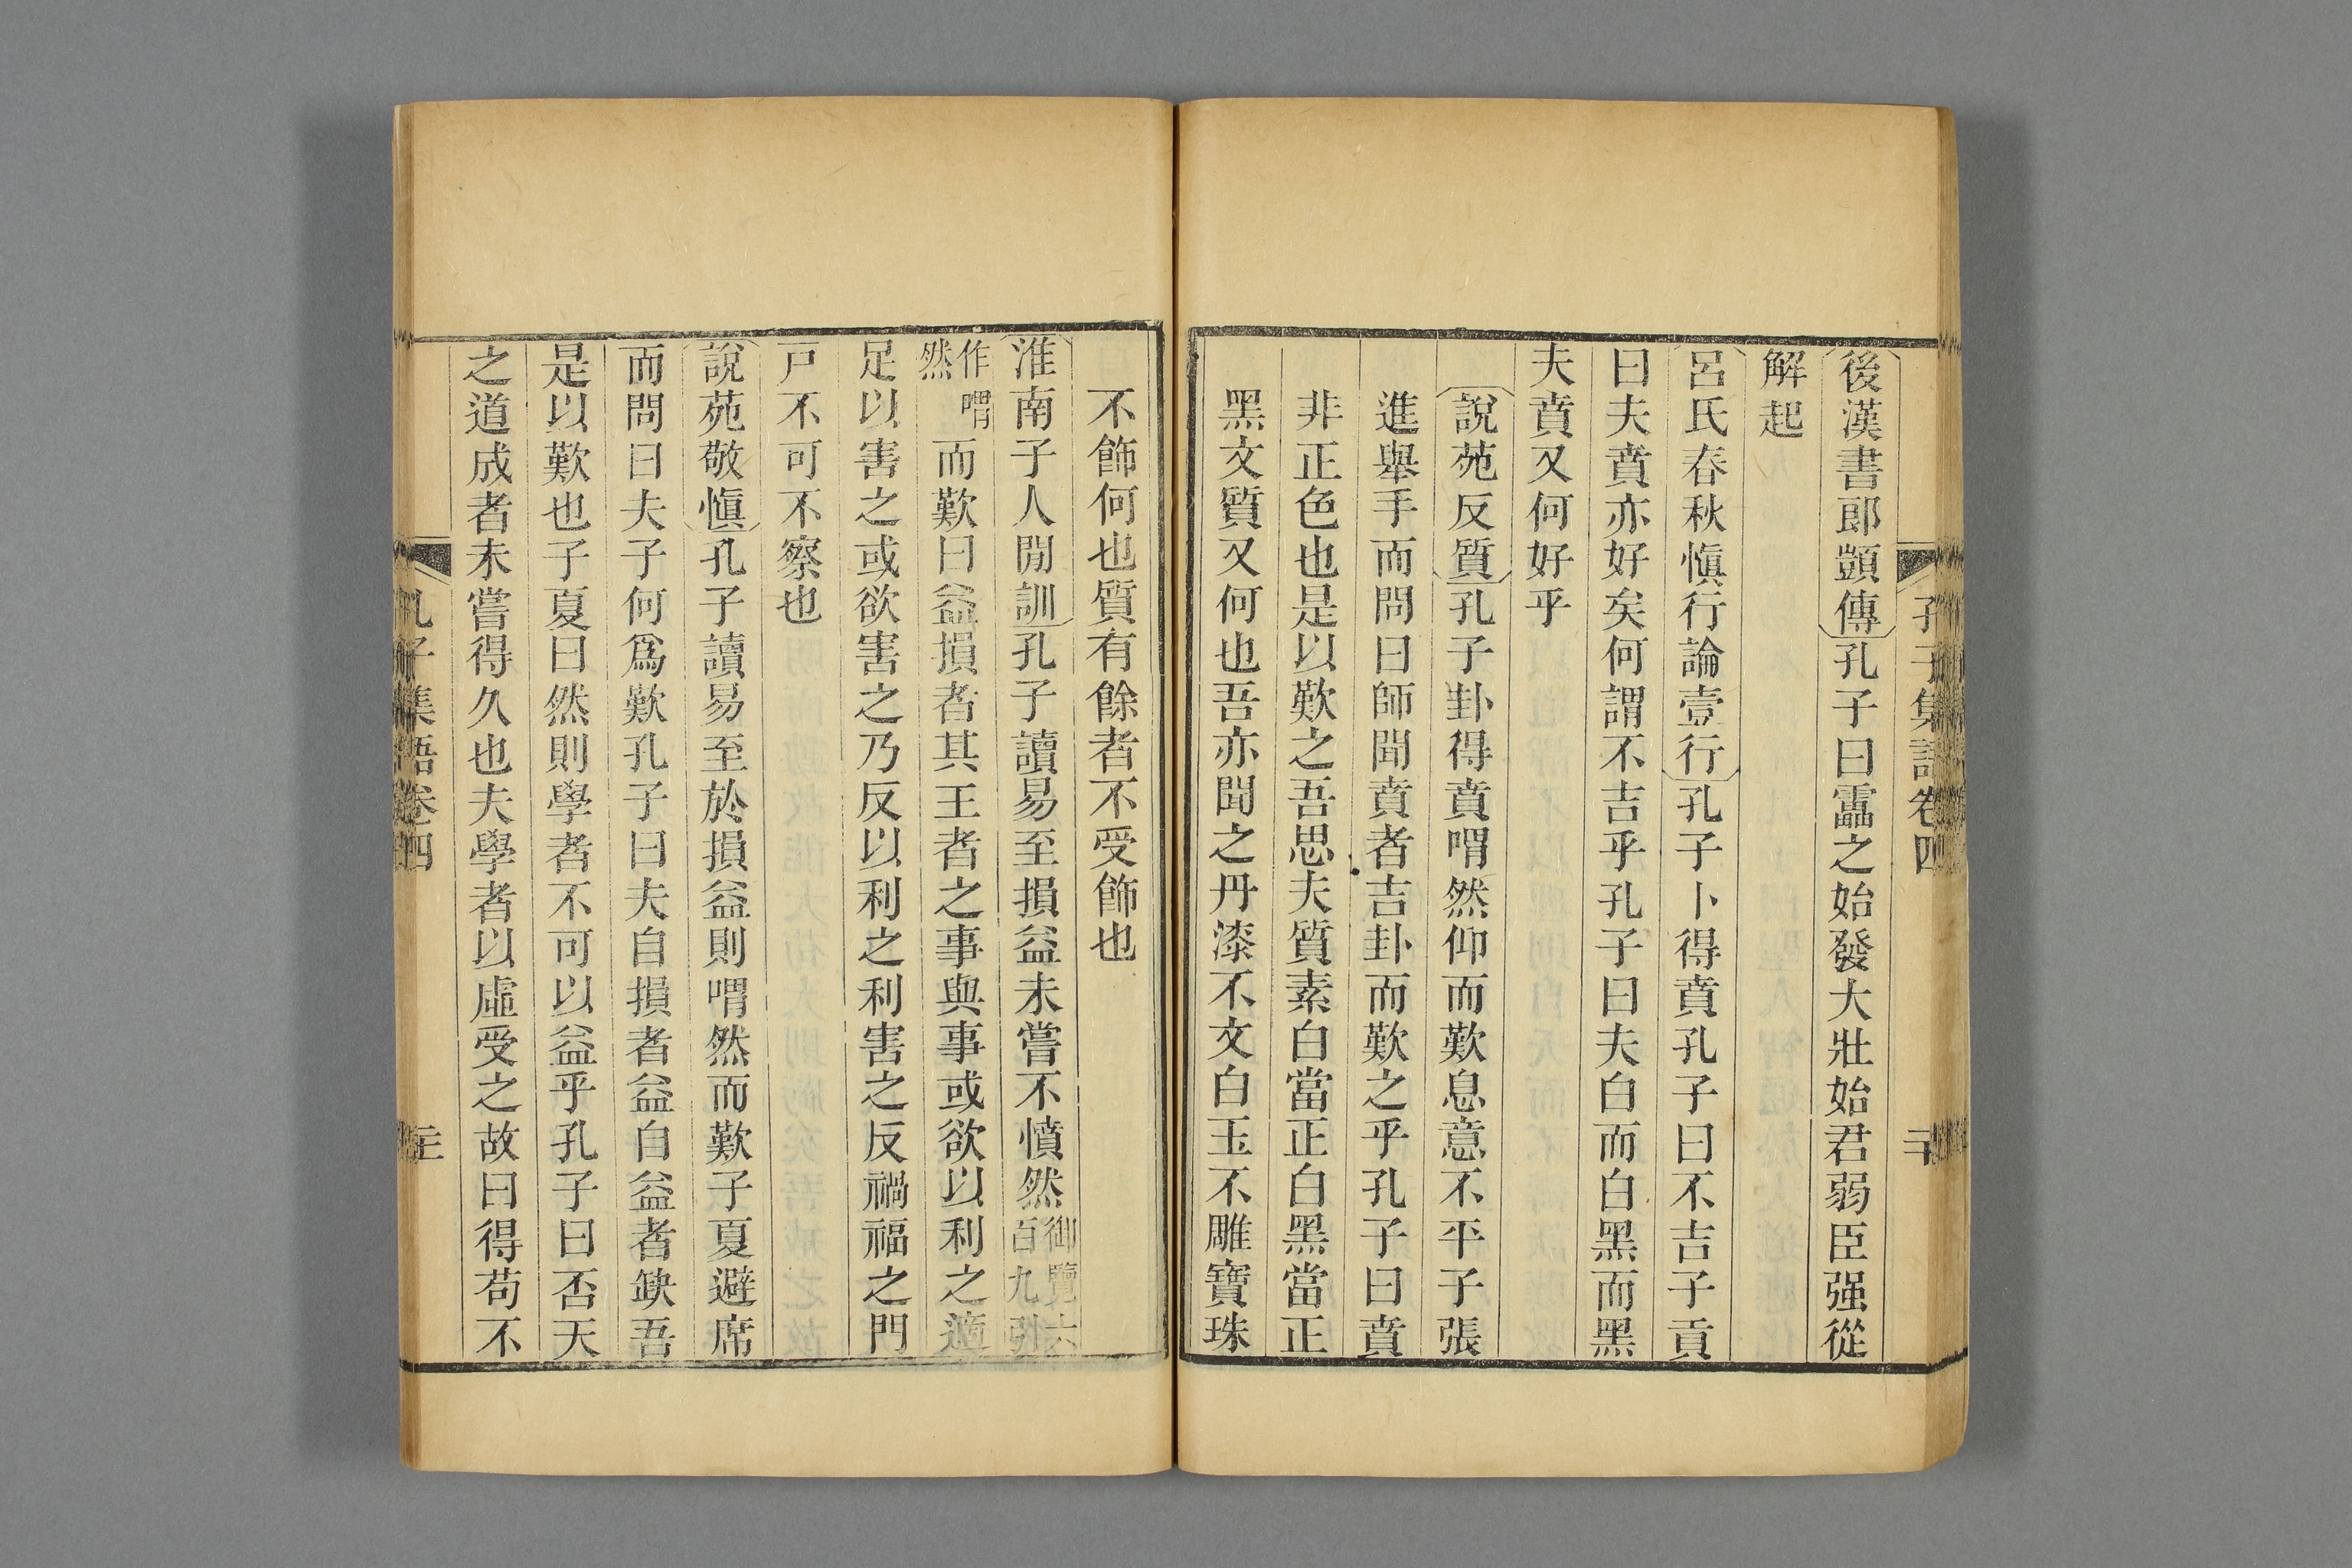 孔子集語卷四
二十
後漢書郎顗傳孔子曰靁之始發大壯始君弱臣强從
解起
呂氏春秋愼行論壹行孔子卜得賁孔子曰不吉子貢
曰夫賁亦好矣何謂不吉乎孔子曰夫白而白黑而黑
夫賁又何好乎
說苑反質孔子卦得賁喟然仰而歎息意不平子張
進舉手而問曰師聞賁者吉卦而歎之乎孔子曰賁
非正色也是以歎之吾思夫質素白當正白黑當正
黑文質又何也吾亦聞之丹漆不文白玉不雕寶珠
不飾何也質有餘者不受飾也
淮南子人閒訓孔子讀易至損益未嘗不憤然御覽六百九引
作喟然而歎曰益損者其王者之事與事或欲以利之適
足以害之或欲害之乃反以利之利害之反禍福之門
戸不可不察也
說苑敬愼孔子讀易至於損益則喟然而歎子夏避席
而問曰夫子何爲歎孔子曰夫自損者益自益者缺吾
是以歎也子夏曰然則學者不可以益乎孔子曰否天
之道成者未嘗得久也夫學者以虛受之故曰得苟不
孔子集語卷四